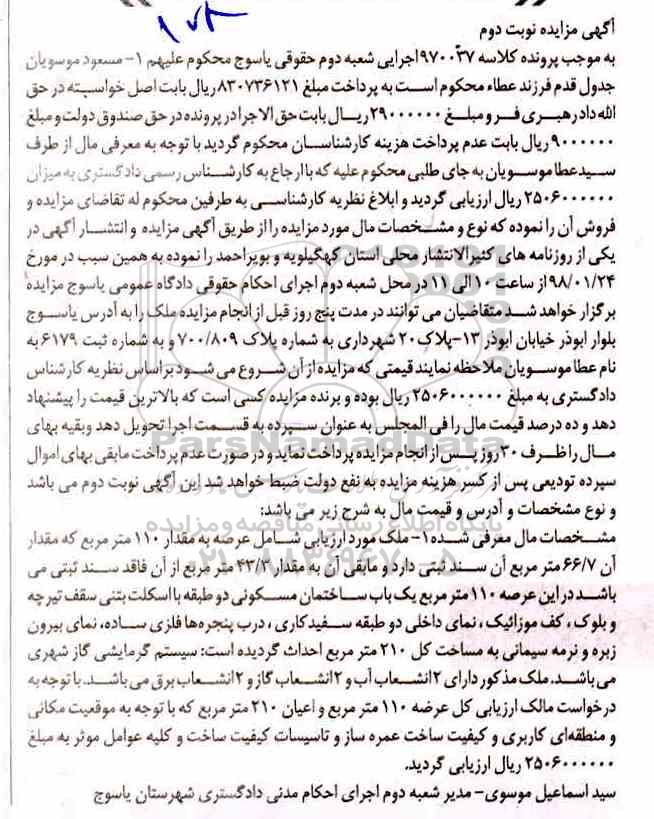 ۱۷۸
آگهی مزایده نوبت دوم
به موجب پرونده کلاسه ۹۷۰۰۳۷اجرایی شعبه دوم حقوقی یاسوج محکوم علیهم ۱- مسعود موسویان
جدول قدم فرزند عطاء محکوم است به پرداخت مبلغ ۸۳۰۷۳۶۱۲۱ریال بابت اصل خواسته در حق
الله داد رهبری فر و مبلغ ۲۹۰۰۰۰۰۰ریال بابت حق الاجرا در پرونده در حق صندوق دولت و مبلغ
۹۰۰۰۰۰۰ ریال بابت عدم پرداخت هزینه کارشناسان محکوم گردید با توجه به معرفی مال از طرف
سید عطا موسویان به جای طلبی محکوم علیه که با ارجاع به کارشناس رسمی دادگستری به میزان
۲۵۰۶۰۰۰۰۰۰ ریال ارزیابی گردید و ابلاغ نظریه کارشناسی به طرفین محکوم له تقاضای مزایده و
فروش آن را نموده که نوع و مشخصات مال مورد مزایده را از طریق آگهی مزایده و انتشار آگهی در
یکی از روزنامه های کثیرالانتشار محلی استان کهگیلویه و بویراحمد را نموده به همین سبب در مورخ
۹۸/۰۱/۲۴از ساعت ۱۰الی ۱۱ در محل شعبه دوم اجرای احکام حقوقی دادگاه عمومی یاسوج مزایده
برگزار خواهد شد متقاضیان می توانند در مدت پنج روز قبل از انجام مزایده ملک را به آدرس یاسوج
بلوار ابوذر خیابان ابوذر ۱۳-پلاک۲۰ شهرداری به شماره پلاک ۷۰۰/۸۰۹ و به شماره ثبت ۶۱۷۹ به
نام عطا موسویان ملاحظه نمایند قیمتی که مزایده از آن شروع می شود براساس نظریه کارشناس
دادگستری به مبلغ ۲۵۰۶۰۰۰۰۰۰ ریال بوده و برنده مزایده کسی است که بالاترین قیمت را پیشنهاد
دهد و ده درصد قیمت مال را فی المجلس به عنوان سپرده به قسمت اجرا تحویل دهد وبقیه بهای
مال را ظرف ۳۰ روز پس از انجام مزایده پرداخت نماید و در صورت عدم پرداخت مابقی بهای اموال
سپرده تودیعی پس از کسر هزینه مزایده به نفع دولت ضبط خواهد شد این آگهی نوبت دوم می باشد
و نوع مشخصات و آدرس و قیمت مال به شرح زیر می باشد:
مشخصات مال معرفی شده ۱- ملک مورد ارزیابی شامل عرصه به مقدار ۱۱۰ متر مربع که مقدار
آن ۶۶/۷ متر مربع آن سند ثبتی دارد و مابقی آن به مقدار ۴۳/۳ متر مربع از آن فاقد سند ثبتی می
باشد در این عرصه ۱۱۰ متر مربع یک باب ساختمان مسکونی دو طبقه با اسکلت بتنی سقف تیرچه
و بلوک ، کف موزائیک ، نمای داخلی دو طبقه سفیدکاری ، درب پنجره‌ها فلزی ساده، نمای بیرون
زبره و نرمه سیمانی به مساحت کل ۲۱۰ متر مربع احداث گردیده است: سیستم گرمایشی گاز شهری
می باشد. ملک مذکور دارای ۲انشعاب آب و ۲انشعاب گاز و ۲انشعاب برق می باشد. با توجه به
درخواست مالک ارزیابی کل عرصه ۱۱۰ متر مربع و اعیان ۲۱۰ متر مربع که با توجه به موقعیت مکانی
و منطقه‌ای کاربری و کیفیت ساخت عمره ساز و تاسیسات کیفیت ساخت و کلیه عوامل موثر به مبلغ
۲۵۰۶۰۰۰۰۰۰ ریال ارزیابی گردید.
سید اسماعیل موسوی- مدیر شعبه دوم اجرای احکام مدنی دادگستری شهرستان یاسوج
ParsNamadData
پایگاه اطلاع رسانی مناقصه و مزایده